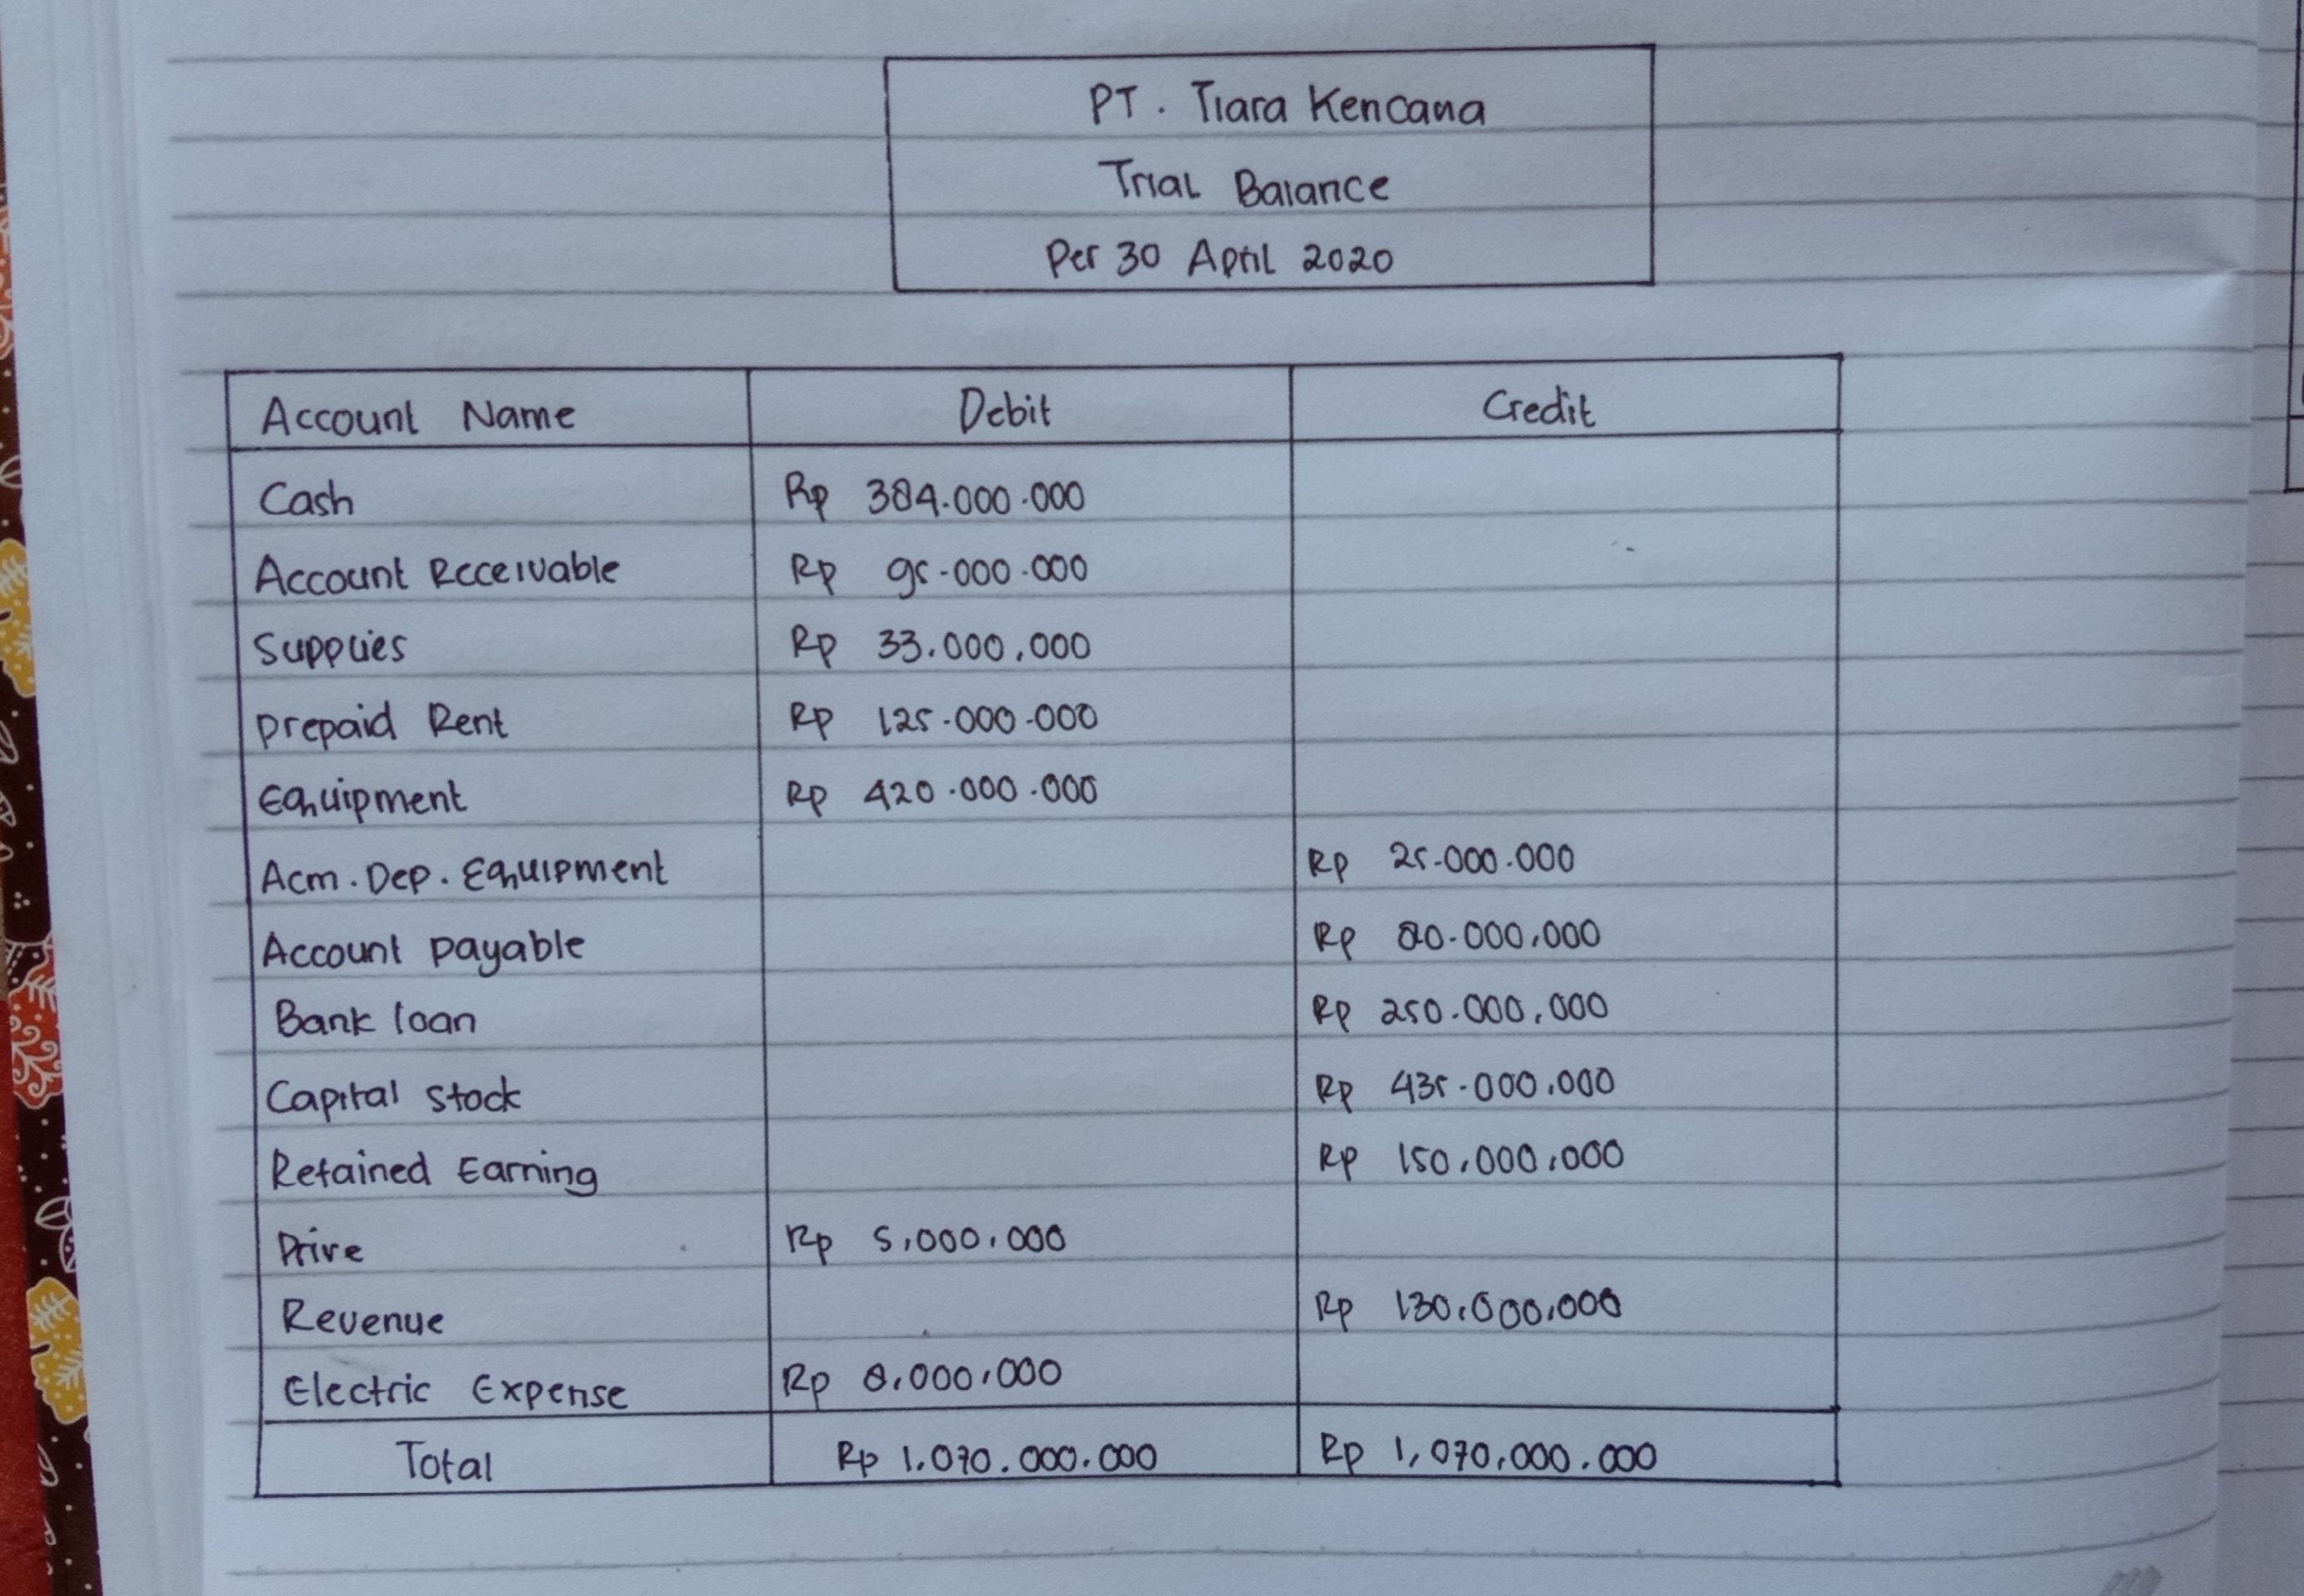 PT. Tiara Kencana
Trial Balance
Per 30 April 2020
Account Name Debit Credit
Cash Rp 384.000.000
Account Receivable Rp 95.000.000
Supplies Rp 33.000.000
Prepaid Rent Rp 125.000.000
Equipment Rp 420.000.000
Acm. Dep. Equipment Rp 25.000.000
Account payable Rp 80.000.000
Bank loan Rp 250.000.000
Capital stock Rp 435.000.000
Retained Earning Rp 150.000.000
Prive Rp 5.000.000
Revenue Rp 130.000.000
Electric Expense Rp 8.000.000
Total Rp 1.070.000.000 Rp 1.070.000.000